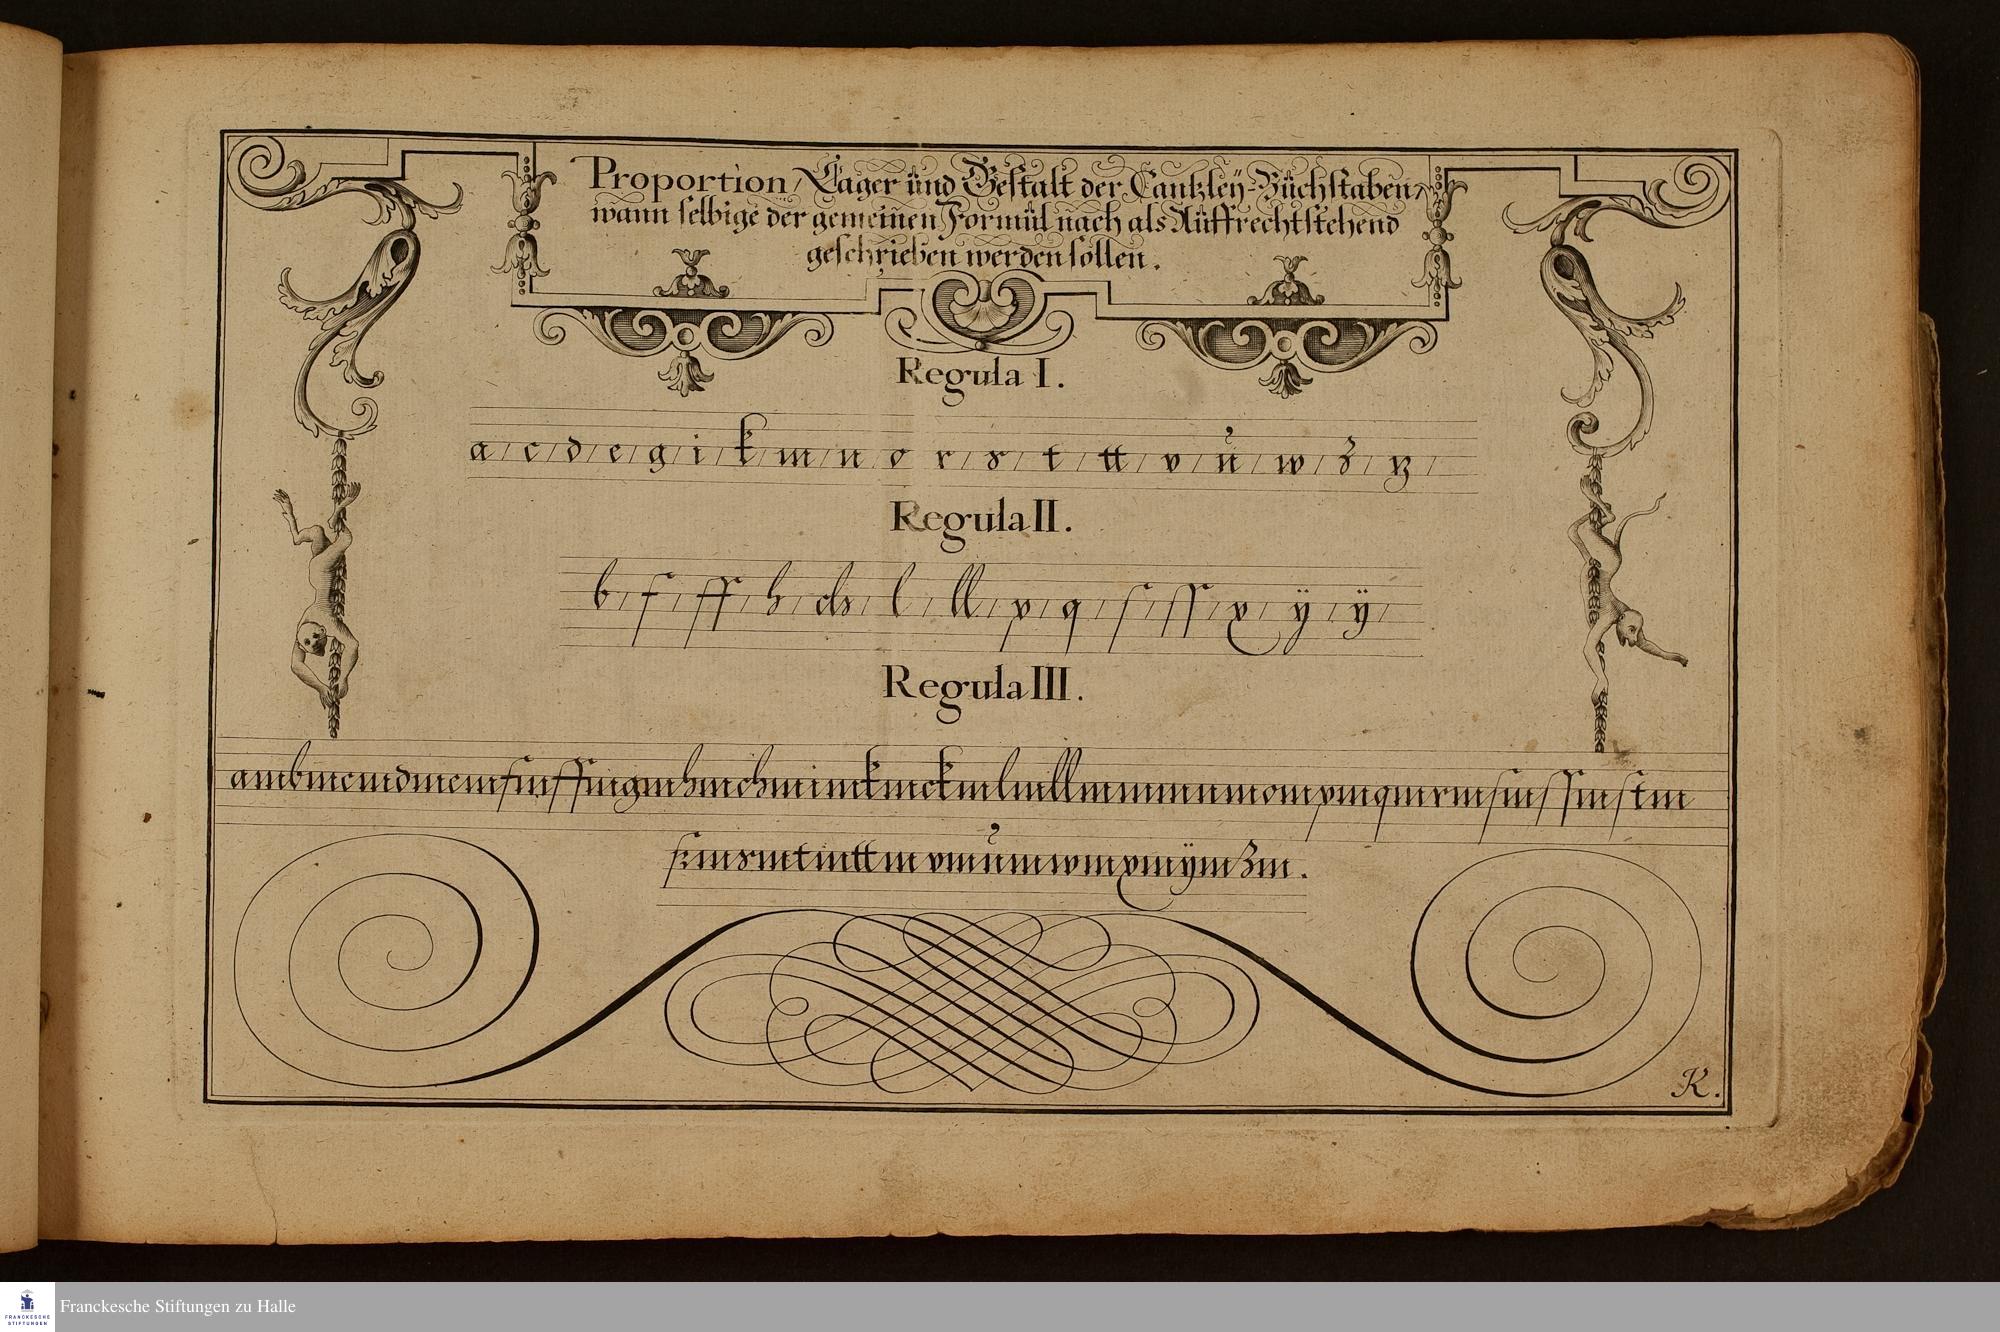 Proportion, Lager und Gestalt der Cantzleÿ-Buchstaben,
wann selbige der gemeinen Formul nach als Auffrechtstehend
geschrieben werden sollen.
Regula I.
a c d e g i k m n o r s t tt v ů w z tz
Regula II.
b f ff h ch l ll p q ſ ſſ x ÿ ÿ
Regula III.
ambmcmdmemfmffmgmhmchmimkmckmlmllmmmnmompmqmrmſmſſmſtm
ßmsmtmttmvmůmwmxmÿmzm.
K.
Franckesche Stiftungen zu Halle
FRANCKESCHE
STIFTUNGEN